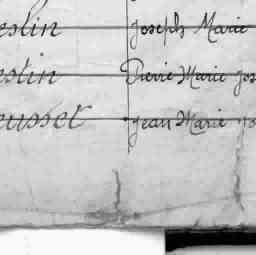 estin Joseph Marie
estin Pierre Marie Jos
eusset Jean Marie Jo